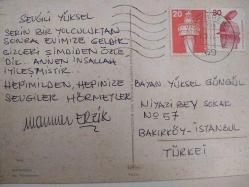 SEVGİLİ YÜKSEL
SERİN BİR YOLCULUKTAN
SONRA EVİMİZE GELDİK
SİZLERİ ŞİMDİDEN ÖZLE
DİK. ANNEN İNŞALLAH
İYİLEŞMİSTİR.
HEPİMİLDEN, HEPİNİZE
SEVGİLER HÖRMETLER
ERZİK
20
30
BAYAN YÜKSEL GÜNGÜL
NİYAZİ BEY SOKAK
No 57
BAKIRKÖY-İSTANBUL
TÜRKEİ